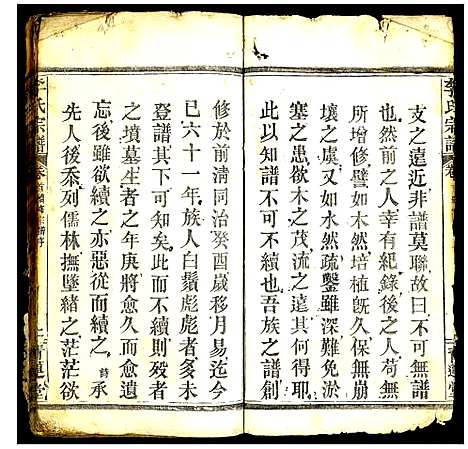 支之遠近非譜莫聯故曰不可無譜
也然前之人幸有紀錄後之人苟無
所增修譬如木然培植旣久保無崩
壞之虞又如水然疏鑿雖深難免淤
塞之患欲木之茂流之遠其何得耶
此以知譜不可不續也吾族之譜創
修於前清同治癸酉歲移月易迄今
已六十一年族人白鬚彪彪者多未
登譜其下可知矣此而不續則歿者
之墳墓生者之年庚將愈久而愈遺
忘後雖欲續之亦惡從而續之詩承
先人後忝列儒林撫墜緒之茫茫欲
李氏宗譜
李氏宗譜